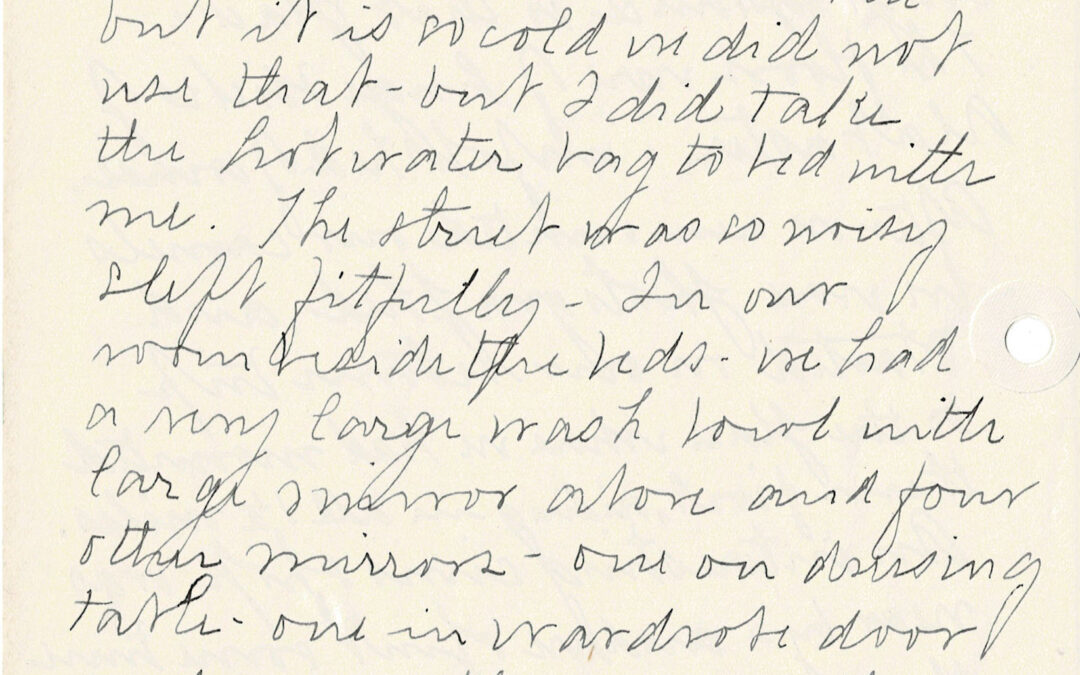 but it is so cold we did not
use that - but I did take
the hot water bag to bed with
me. The street was so noisy
slept fitfully - In our
room beside the beds - we had
a very large wash bowl with
large mirror above and four
other mirrors - one on dressing
table - one in wardrobe door